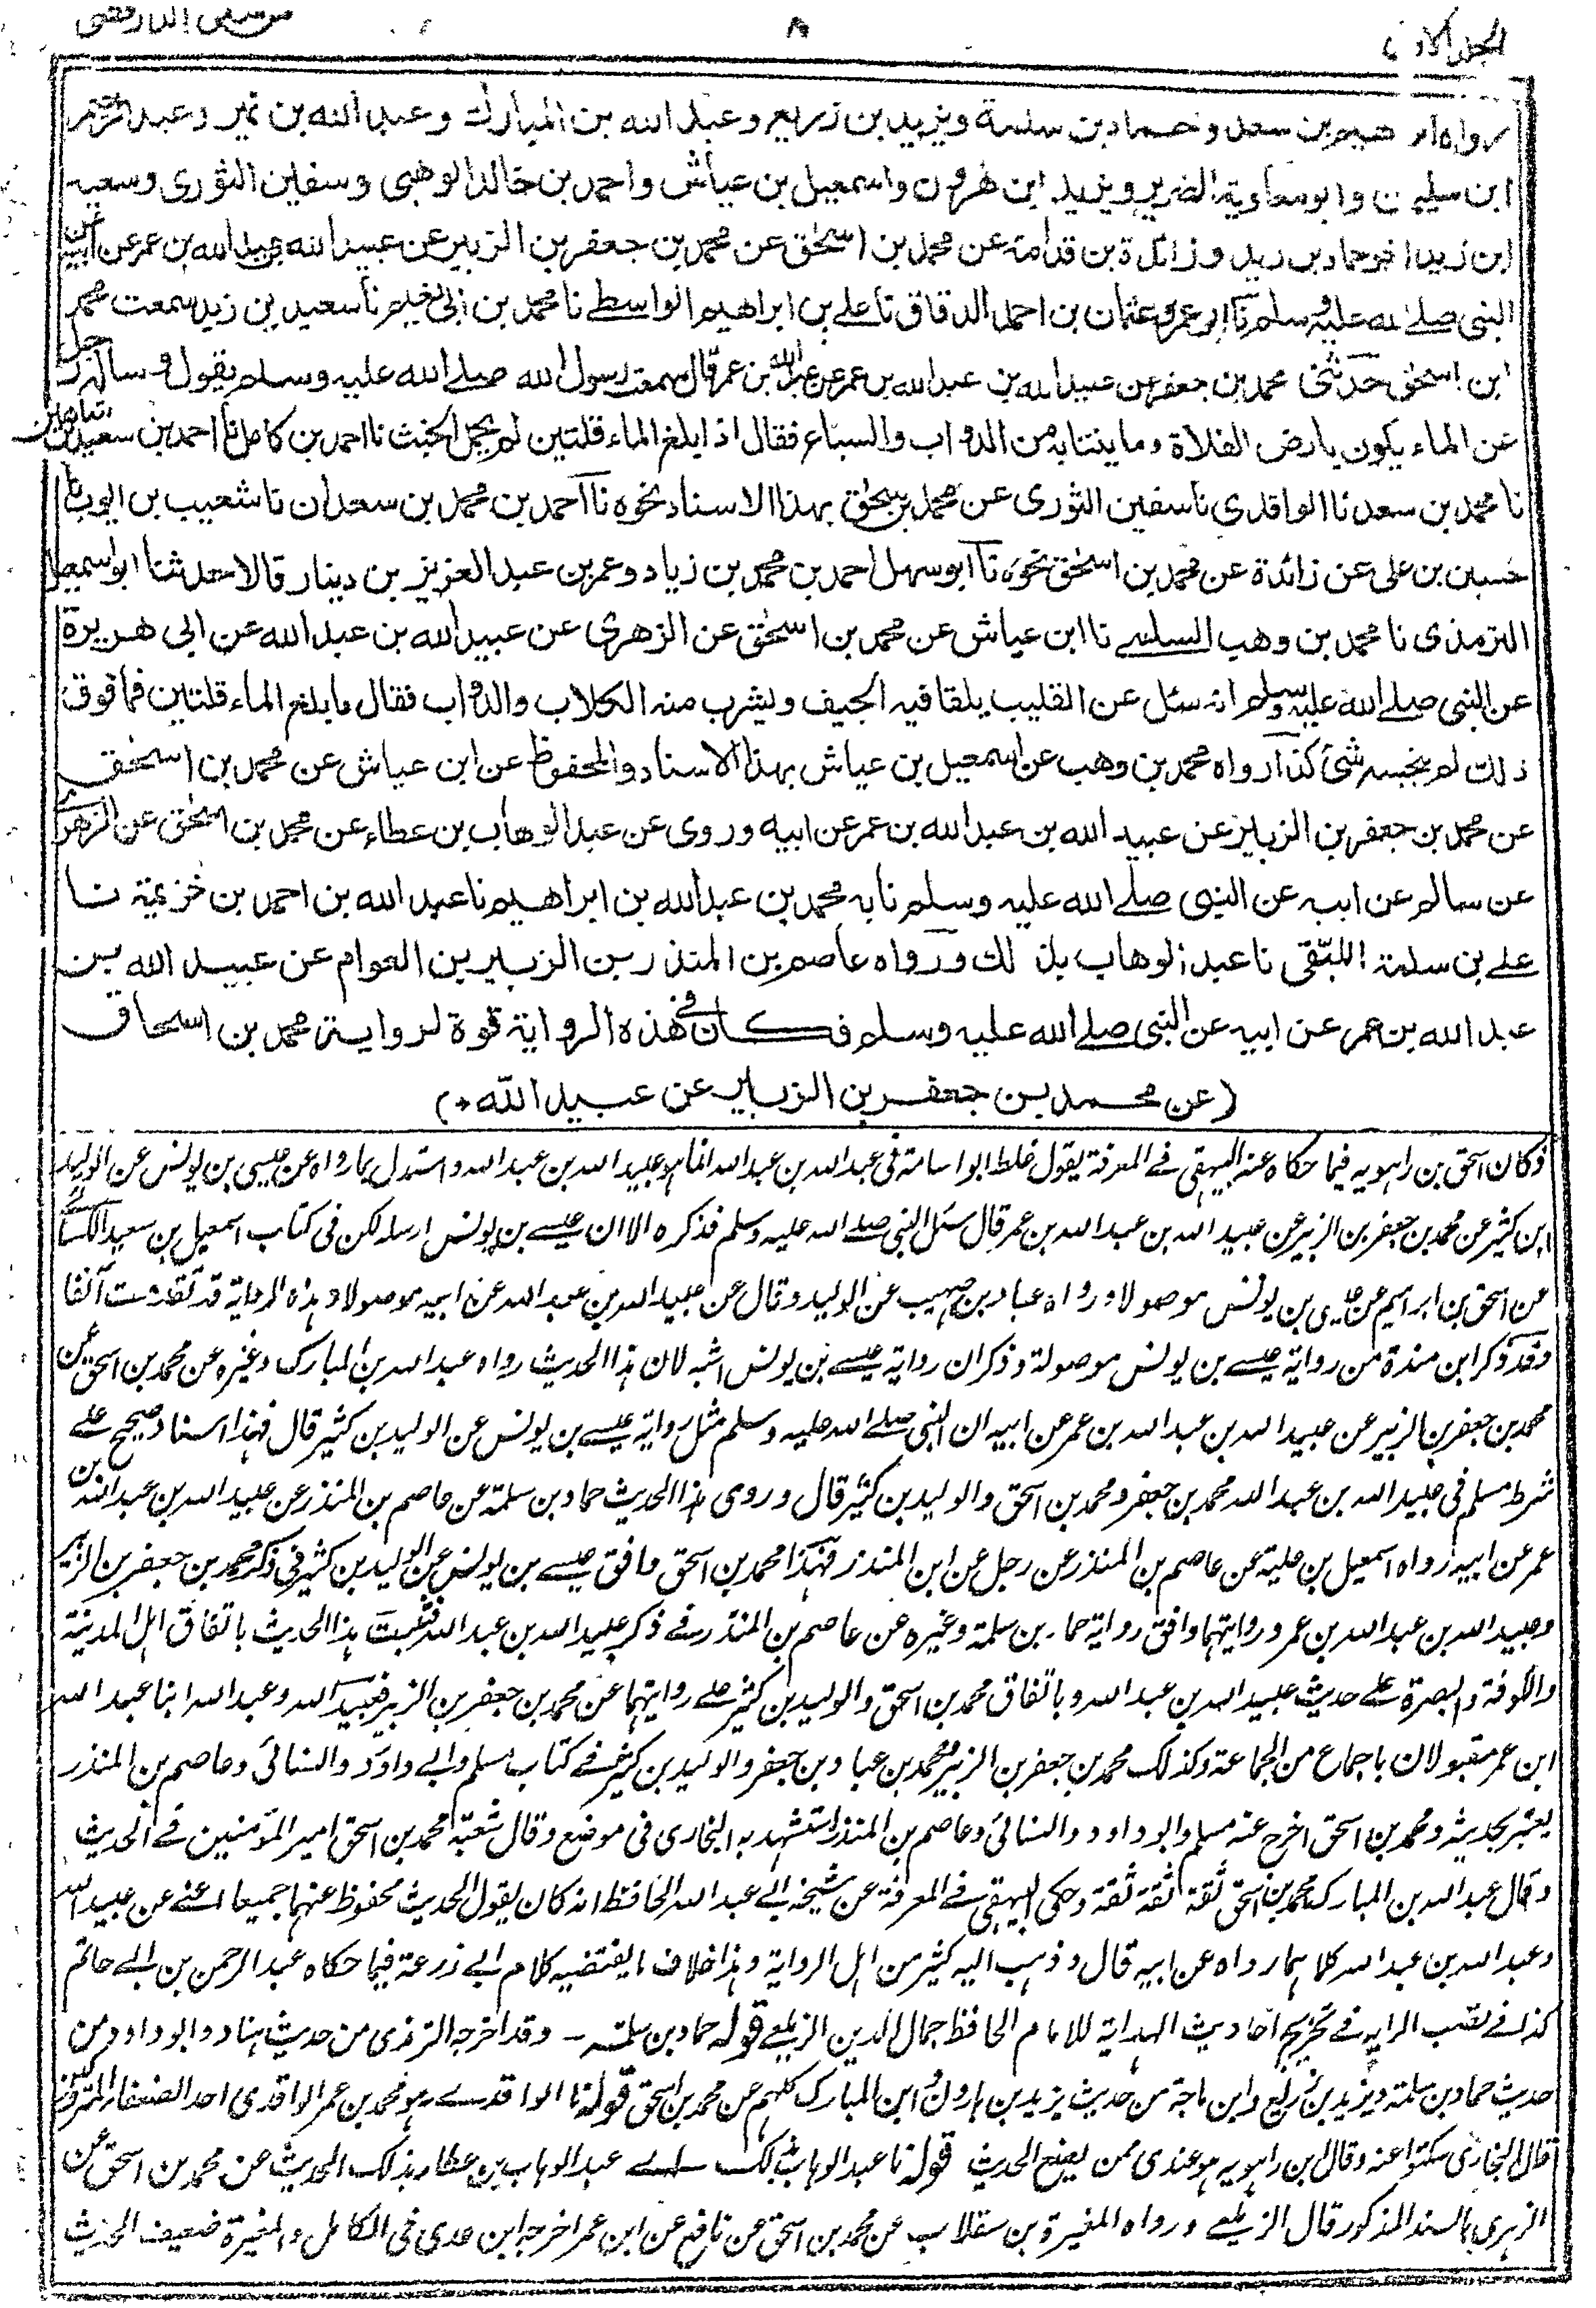 الجلد الاول ٨ سنن الدارقطنى
رواه ابراهيم بن سعد وحماد بن سلمة ويزيد بن زريع وعبد الله بن المبارك وعبد الله بن نمير وعبد الرحيم
ابن سليمان وابو معاوية الضرير ويزيد ابن هرون واسمعيل بن عياش واحمد بن خالد الوهبى وسفين الثورى وسعيد
ابن زيد اخو حماد بن زيد وزائدة بن قدامة عن محمد بن اسحٰق عن محمد بن جعفر بن الزبير عن عبيد الله بن عبد الله بن عمر عن ابيه عن
النبى صلے الله عليه وسلم نا ابو عمرو عثمان بن احمد الدقاق نا علے بن ابراهيم الواسطے نا محمد بن ابى نعيم نا سعيد بن زيد سمعت محمد
ابن اسحٰق حدثنى محمد بن جعفر عن عبيد الله بن عبد الله بن عمر عن عبد الله بن عمر قال سمعت رسول الله صلے الله عليه وسلم يقول وساله رجل
عن الماء يكون بارض الفلاة وما ينتابه من الدواب والسباع فقال اذا بلغ الماء قلتين لم يحمل الخبث نا احمد بن كامل نا احمد بن سعيد بن شاهين
نا محمد بن سعد نا الواقدى نا سفين الثورى عن محمد بن اسحٰق بهذا الاسناد نحوه نا احمد بن محمد بن سعدان نا شعيب بن ايوب نا
حسين بن على عن زائدة عن محمد بن اسحٰق نحوه نا ابو سهل احمد بن محمد بن زياد وعمر بن عبد العزيز بن دينار قالا حدثنا ابو اسمعيل
الترمذى نا محمد بن وهب السلمے نا ابن عياش عن محمد بن اسحٰق عن الزهرى عن عبيد الله بن عبد الله عن ابى هريرة
عن النبى صلے الله عليه وسلم انه سئل عن القليب يلقا فيه الجيف ويشرب منه الكلاب والدواب فقال ما بلغ الماء قلتين فما فوق
ذلك لم ينجسه شئ كذا رواه محمد بن وهب عن اسمعيل بن عياش بهذا الاسناد والمحفوظ عن ابن عياش عن محمد بن اسحٰق
عن محمد بن جعفر بن الزبير عن عبيد الله بن عبد الله بن عمر عن ابيه وروى عن عبد الوهاب بن عطاء عن محمد بن اسحٰق عن الزهرى
عن سالم عن ابيه عن النبى صلے الله عليه وسلم نا به محمد بن عبد الله بن ابراهيم نا عبد الله بن احمد بن خزيمة نا
علے بن سلمة اللبقى نا عبد الوهاب بذلك ورواه عاصم بن المنذر بن الزبير بن العوام عن عبيد الله بن
عبد الله بن عمر عن ابيه عن النبى صلے الله عليه وسلم فكان فى هذه الرواية قوة لرواية محمد بن اسحاق
(عن محمد بن جعفر بن الزبير عن عبيد الله *)
وكان اسحق بن راہويه فيما حكاه عنه البيهقى فے المعرفة يقول غلط ابو اسامة فى عبد الله بن عبد الله انما ہو عبيد الله بن عبد الله واستدل بما رواه عن عيسى بن يونس عن الوليد
ابن كثير عن محمد بن جعفر بن الزبير عن عبيد الله بن عبد الله بن عمر قال سئل النبى صلے الله عليه وسلم فذكره الا ان عيسے بن يونس ارسله لكن فى كتاب اسمعيل بن سعيد الكسائى
عن اسحق بن ابراہيم عن عيسى بن يونس موصولا ورواه عباد بن صہيب عن الوليد وقال عن عبيد الله بن عبد الله عن ابيه موصولا وہذه الرواية قد تقدمت آنفا
وقد ذكر ابن مندة من رواية عيسے بن يونس موصولة وذكر ان رواية عيسے بن يونس اشبه لان ہذا الحديث رواه عبد الله بن المبارك وغيره عن محمد بن اسحق عن
محمد بن جعفر بن الزبير عن عبيد الله بن عبد الله بن عمر عن ابيه ان النبى صلے الله عليه وسلم مثل رواية عيسے بن يونس عن الوليد بن كثير قال فہذا اسناد صحيح علے
شرط مسلم فى عبيد الله بن عبد الله ومحمد بن جعفر ومحمد بن اسحق والوليد بن كثير قال وروى ہذا الحديث حماد بن سلمة عن عاصم بن المنذر عن عبيد الله بن عبد الله بن
عمر عن ابيه رواه اسمعيل بن علية عن عاصم بن المنذر عن رجل عن ابن المنذر فہذا محمد بن اسحق وافق عيسے بن يونس عن الوليد بن كثير فى ذكر محمد بن جعفر بن الزبير
وعبيد الله بن عبد الله بن عمر وروايتہما وافق رواية حماد بن سلمة وغيره عن عاصم بن المنذر فے ذكر عبيد الله بن عبد الله فثبت ہذا الحديث باتفاق اہل المدينة
والكوفة والبصرة علے حديث عبيد الله بن عبد الله وباتفاق محمد بن اسحق والوليد بن كثير علے روايتہما عن محمد بن جعفر بن الزبير فعبيد الله وعبد الله ابنا عبد الله
ابن عمر مقبولان باجماع من الجماعة وكذلك محمد بن جعفر بن الزبير ومحمد بن عباد بن جعفر والوليد بن كثير فے كتاب مسلم وابے داود والنسائى وعاصم بن المنذر
يعتبر بحديثه ومحمد بن اسحق اخرج عنه مسلم وابو داود والنسائى وعاصم بن المنذر استشہد به البخارى فى موضع وقال شعبة محمد بن اسحق امير المؤمنين فے الحديث
وقال عبد الله بن المبارك محمد بن اسحق ثقة ثقة ثقة وحكى البيهقى فے المعرفة عن شيخه ابے عبد الله الحافظ انه كان يقول الحديث محفوظ عنہما جميعا اعنے عن عبيد الله
وعبد الله بن عبد الله كلاہما رواه عن ابيه قال وذہب اليه كثير من اہل الرواية وہذا خلاف ما يقتضيه كلام ابے زرعة فيما حكاه عبد الرحمن بن ابے حاتم
كذا فے نصب الرايه فے تخريج احاديث الہداية للامام الحافظ جمال الدين الزيلعے قوله حماد بن سلمة - وقد اخرجه الترمذى من حديث ہناد وابو داود من
حديث حماد بن سلمة ويزيد بن زريع وابن ماجة من حديث يزيد بن ہارون وابن المبارك كلہم عن محمد بن اسحق قوله نا الواقدے ہو محمد بن عمر الواقدى احد الضعفاء المتروكين
قال البخارى سكتوا عنه وقال ابن راہويه ہو عندى ممن يضع الحديث قوله نا عبد الوہاب بذلك اے عبد الوہاب بن عطاء بذلك الحديث عن محمد بن اسحق عن
الزہرى بالسند المذكور قال الزيلعے ورواه المغيرة بن سقلاب عن محمد بن اسحق عن نافع عن ابن عمر اخرجه ابن عدى فى الكامل والمغيرة ضعيف الحديث